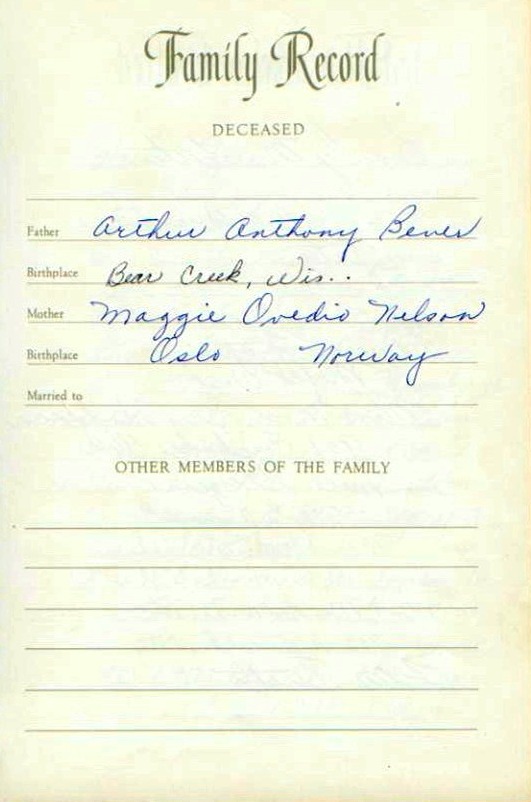 Family Record
DECEASED
Father Arthur Anthony Bever
Birthplace Bear Creek, Wis..
Mother Maggie Ovedio Nelson
Birthplace Oslo Norway
Married to
OTHER MEMBERS OF THE FAMILY